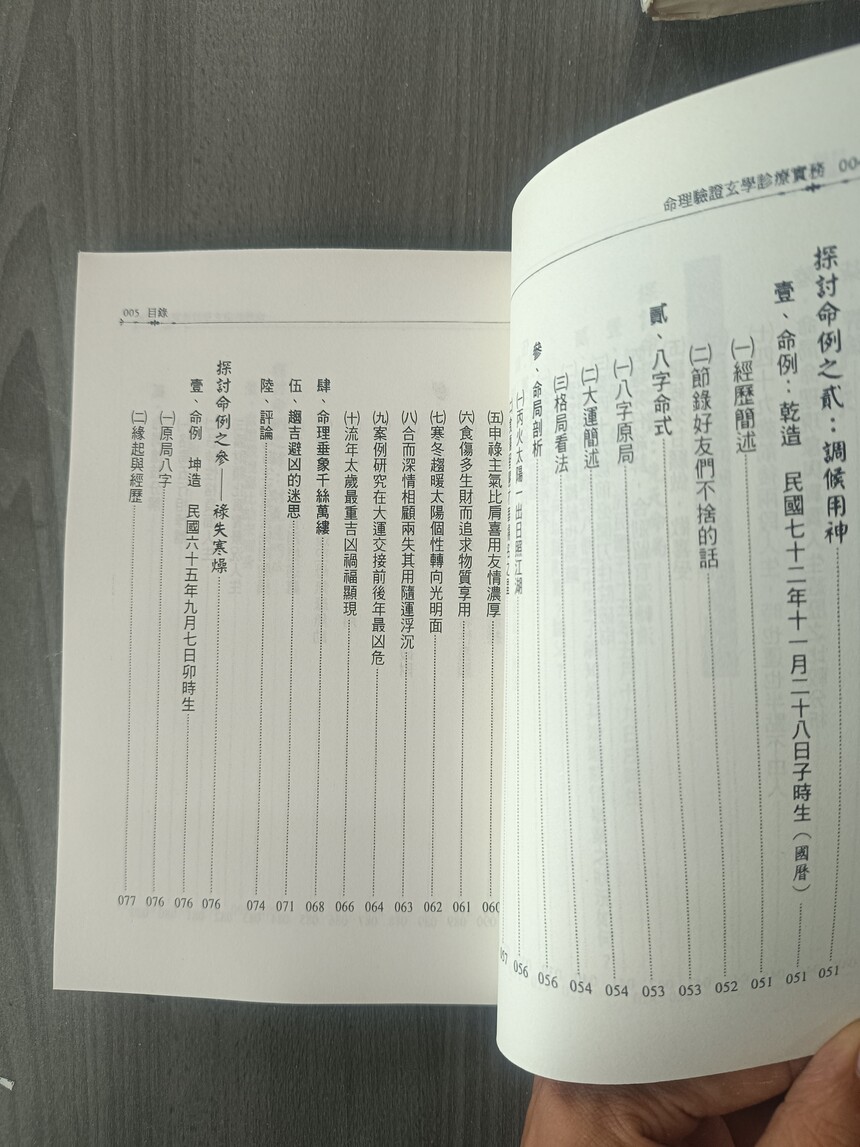 命理驗證玄學診療實務
探討命例之貳：調候用神 051
壹、命例：乾造 民國七十二年十一月二十八日子時生（國曆） 051
㈠經歷簡述 051
㈡節錄好友們不捨的話 052
貳、八字命式 053
㈠八字原局 053
㈡大運簡述 054
㈢格局看法 054
參、命局剖析 056
㈠丙火太陽一出日照江湖 056
005 目錄
㈤申祿主氣比肩喜用友情濃厚 060
㈥食傷多生財而追求物質享用 061
㈦寒冬趨暖太陽個性轉向光明面 062
㈧合而深情相顧兩失其用隨運浮沉 063
㈨案例研究在大運交接前後年最凶危 064
㈩流年太歲最重吉凶禍福顯現 066
肆、命理垂象千絲萬縷 068
伍、趨吉避凶的迷思 071
陸、評論 074
探討命例之參——祿失寒燥 076
壹、命例 坤造 民國六十五年九月七日卯時生 076
㈠原局八字 076
㈡緣起與經歷 077